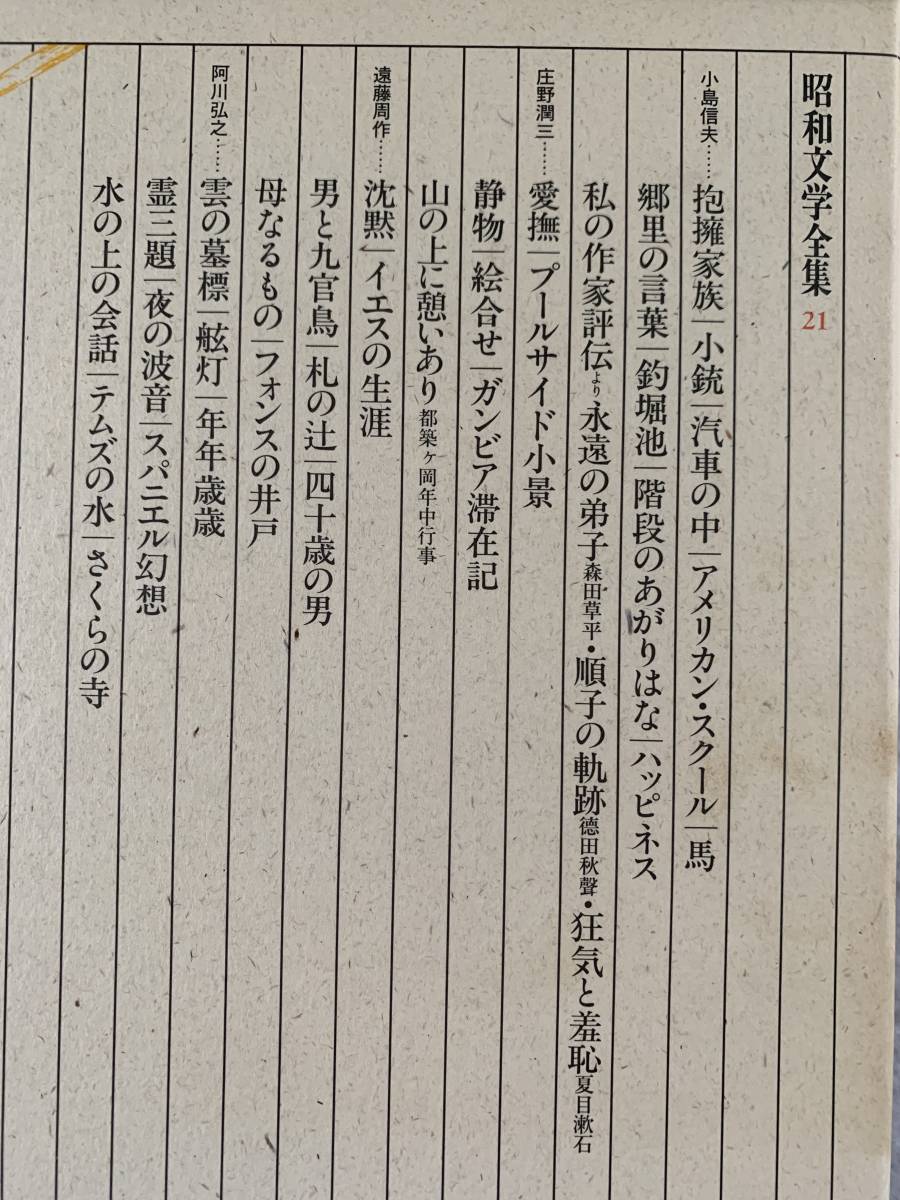 昭和文学全集 21
小島信夫……抱擁家族|小銃|汽車の中|アメリカン・スクール|馬
郷里の言葉|釣堀池|階段のあがりはな|ハッピネス
私の作家評伝より永遠の弟子森田草平・順子の軌跡徳田秋聲・狂気と羞恥夏目漱石
庄野潤三……愛撫|プールサイド小景
静物|絵合せ|ガンビア滞在記
山の上に憩いあり都築ヶ岡年中行事
遠藤周作……沈黙|イエスの生涯
男と九官鳥|札の辻|四十歳の男
母なるもの|フォンスの井戸
阿川弘之……雲の墓標|舷灯|年年歳歳
霊三題|夜の波音|スパニエル幻想
水の上の会話|テムズの水|さくらの寺